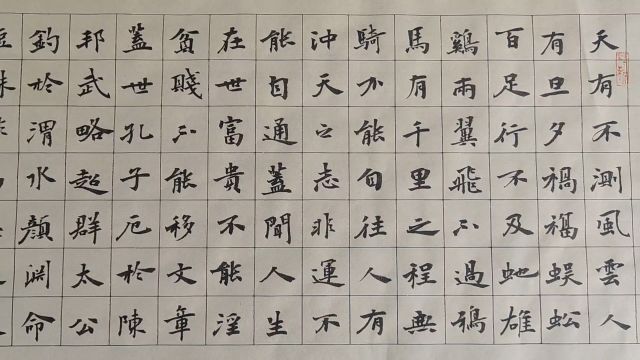 天有不測風雲人
有旦夕禍福蜈蚣
百足行不及虵雄
鷄兩翼飛不過鴉
馬有千里之程無
騎不能自往人有
沖天之志非運不
能自通蓋聞人生
在世富貴不能淫
貧賤不能移文章
蓋世孔子厄於陳
邦武略超群太公
釣於渭水顏淵命